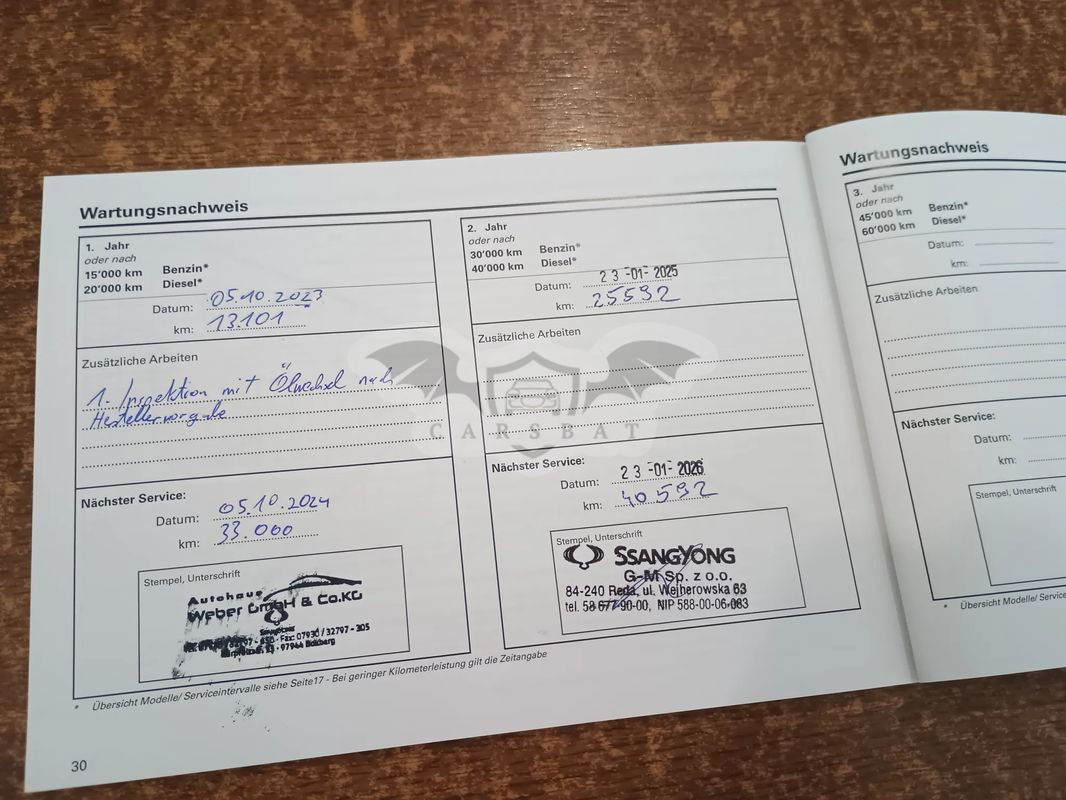 Wartungsnachweis
1. Jahr
oder nach
15'000 km Benzin*
20'000 km Diesel*
Datum: 05.10.2023
km: 13.101
Zusätzliche Arbeiten
1. Inspektion mit Ölwechsel nach
Herstellervorgabe
Nächster Service:
Datum: 05.10.2024
km: 33.000
Stempel, Unterschrift
Autohaus
Weber GmbH & Co.KG
SSANGYONG
Fax: 07930 / 32797 - 305
97944 Boxberg
2. Jahr
oder nach
30'000 km Benzin*
40'000 km Diesel*
Datum: 23-01-2025
km: 25592
Zusätzliche Arbeiten
Nächster Service:
Datum: 23-01-2026
km: 40592
Stempel, Unterschrift
SSANGYONG
G-M Sp. z o.o.
84-240 Reda, ul. Wejherowska 63
tel. 58 677-90-00, NIP 588-00-06-083
* Übersicht Modelle/ Serviceintervalle siehe Seite17 - Bei geringer Kilometerleistung gilt die Zeitangabe
30
Wartungsnachweis
3. Jahr
oder nach
45'000 km Benzin*
60'000 km Diesel*
Datum:
km:
Zusätzliche Arbeiten
Nächster Service:
Datum:
km:
Stempel, Unterschrift
* Übersicht Modelle/ Service
CARSBAT